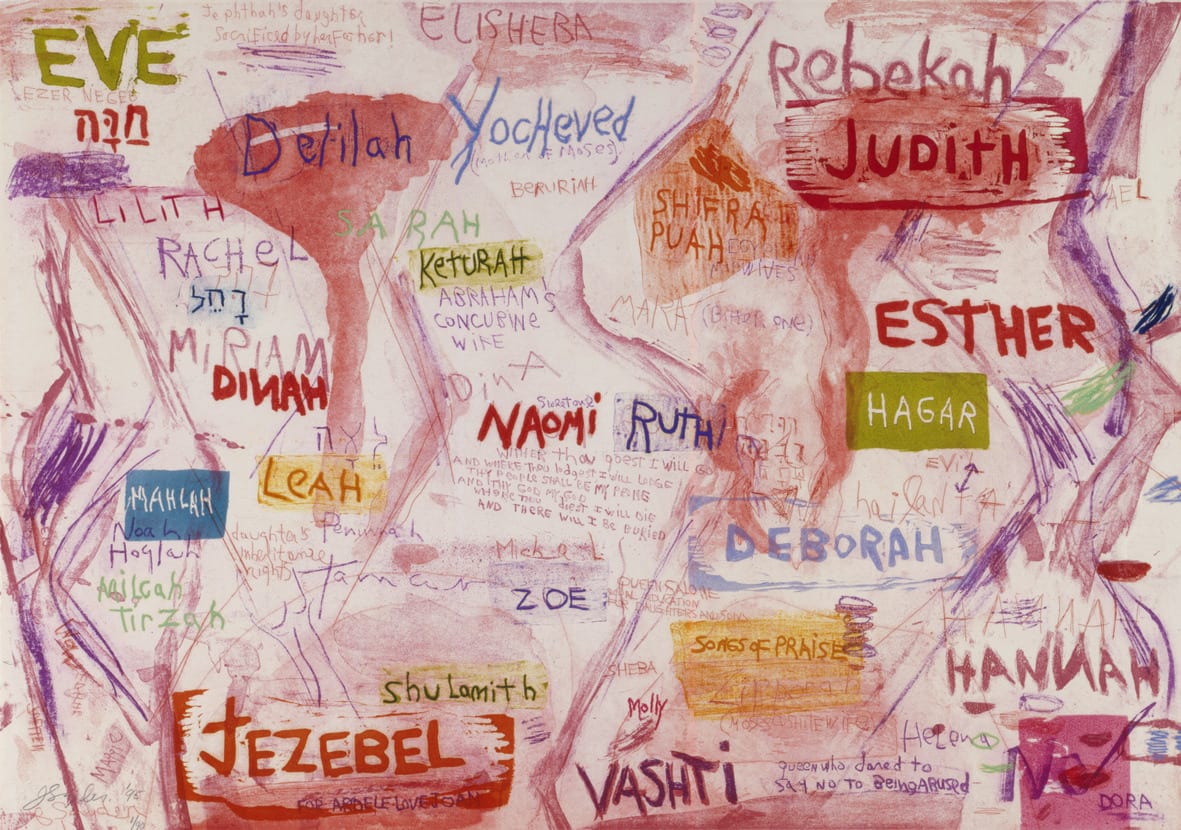 Jephthah's daughter
sacrificed by her Father!
ELISHEBA
EVE
EZER NEGED
חַוָּה
Rebekah
Delilah
YocHeved
(mother of Moses)
JUDITH
BERURIAH
LILITH
SARAH
SHIFRA
PUAH
MIDWIVES
RACHEL
KeTURAH
ABRAHAM'S
CONCUBINE
WIFE
MARA (Bitter one)
ESTHER
MIRIAM
DINAH
DinA
NAOMI
RUTH
HAGAR
לאה
LeAH
WITHER thou goest I will GO
AND WHERE THOU lodgest I WILL LODGE
THY PEOPLE SHALL BE MY PEOPLE
AND THY GOD MY GOD
WHERE THOU diest I WILL DIE
AND THERE WILL I BE BURIED
MAHLAH
Noah
Hoglah
Milcah
TirZah
daughter's
inheritance
rights
Peninnah
Tamar
Michal
ZOE
DEBORAH
SONGS OF PRAISE
HANNAH
HANNAH
SHEBA
Molly
shulamith
JEZEBEL
FOR ABBELE LOVE JOAN
VASHTI
queen who dared to
say NO TO BeingABUSED
Helena
DORA
MARIE